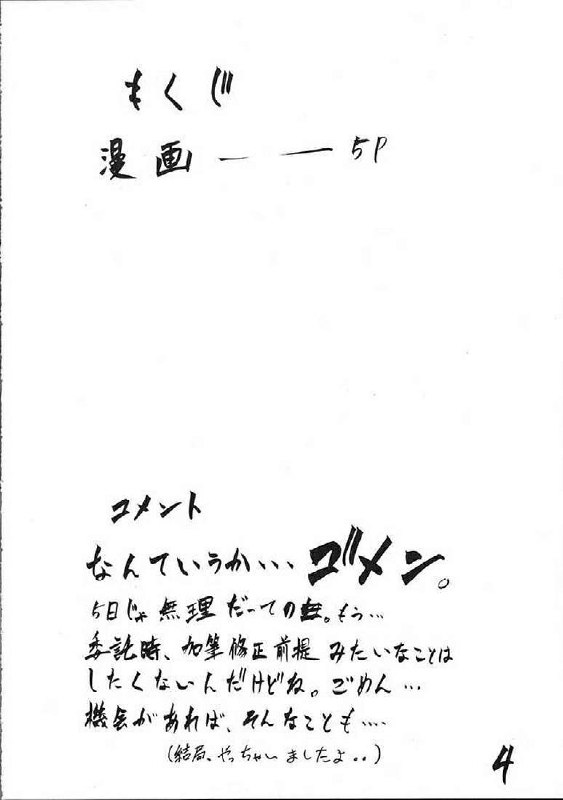 もくじ
漫画 — — 5P
コメント
なんていうか・・・ゴメン。
5日じゃ無理だっての。もう…
委託時、加筆修正前提みたいなことは
したくないんだけどね。ごめん…
機会があれば、そんなことも‥‥
(結局、やっちゃいましたよ‥)
4